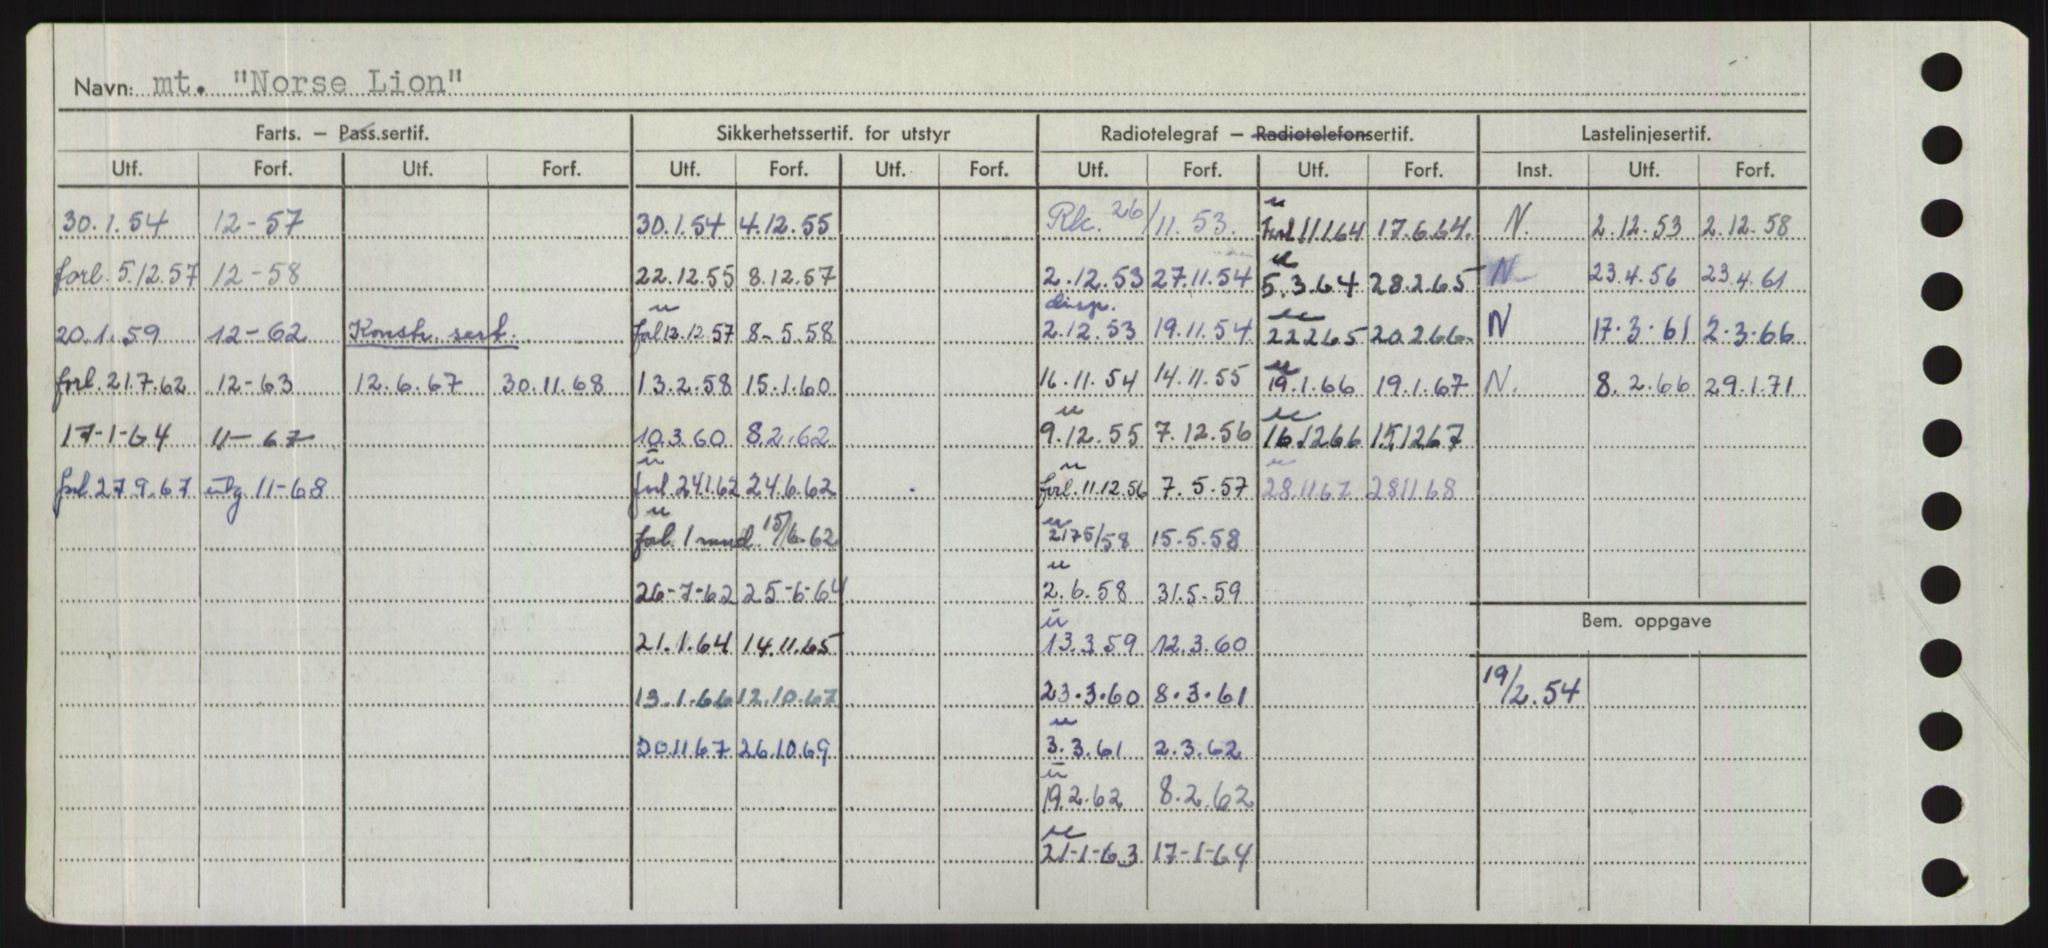 Navn: mt. "Norse Lion"
Farts. – Pass.sertif. Sikkerhetssertif. for utstyr Radiotelegraf – Radiotelefonsertif. Lastelinjesertif.
Utf. Forf. Utf. Forf. Utf. Forf. Utf. Forf. Utf. Forf. Utf. Forf. Inst. Utf. Forf.
30.1.54 12-57 30.1.54 4.12.55 26/11.53. u forl 11.1.64 17.6.64. N. 2.12.53 2.12.58
forl. 5.12.57 12-58 22.12.55 8.12.57 2.12.53 27.11.54 u 5.3.64 28.2.65 N 23.4.56 23.4.61
20.1.59 12-62 Konstr. sert. u forl 12.12.57 8-5.58 disp. 2.12.53 19.11.54 u 22265 20.266. N 17.3.61 2.3.66
forl. 21.7.62 12-63 12.6.67 30.11.68 13.2.58 15.1.60 16.11.54 14.11.55 u 19.1.66 19.1.67 N. 8.2.66 29.1.71
17-1-64 11-67 10.3.60 8.2.62 u 9.12.55 7.12.56 u 16.1266 15.1267
forl 27.9.67 11-68 u forl. 24.1.62 24.6.62 u forl. 11.12.56 7.5.57 u 28.1167 281168
u forl. 1 mnd. 15/6.62 u 15.5.58
26-7-62 25-6-64 u 2.6.58 31.5.59
21.1.64 14.11.65 u 13.3.59 12.3.60 Bem. oppgave
13.1.66 12.10.67 23.3.60 8.3.61 19/2.54
30.11.67 26.10.69 u 3.3.61 2.3.62
u 19.2.62 8.2.62
u 21-1-63 17-1-64